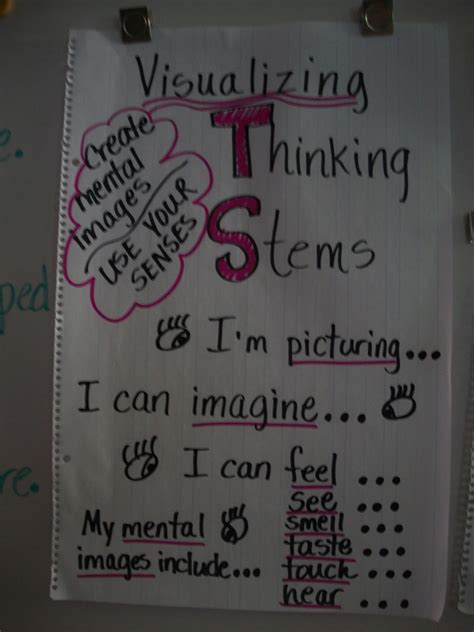 Visualizing
Create
mental
Images
USE YOUR
SENSES
Thinking
Stems
I'm picturing...
I can imagine...
I can feel ...
see ...
smell ...
taste ...
touch ...
hear ...
My mental
images include...
e.
ped
re.